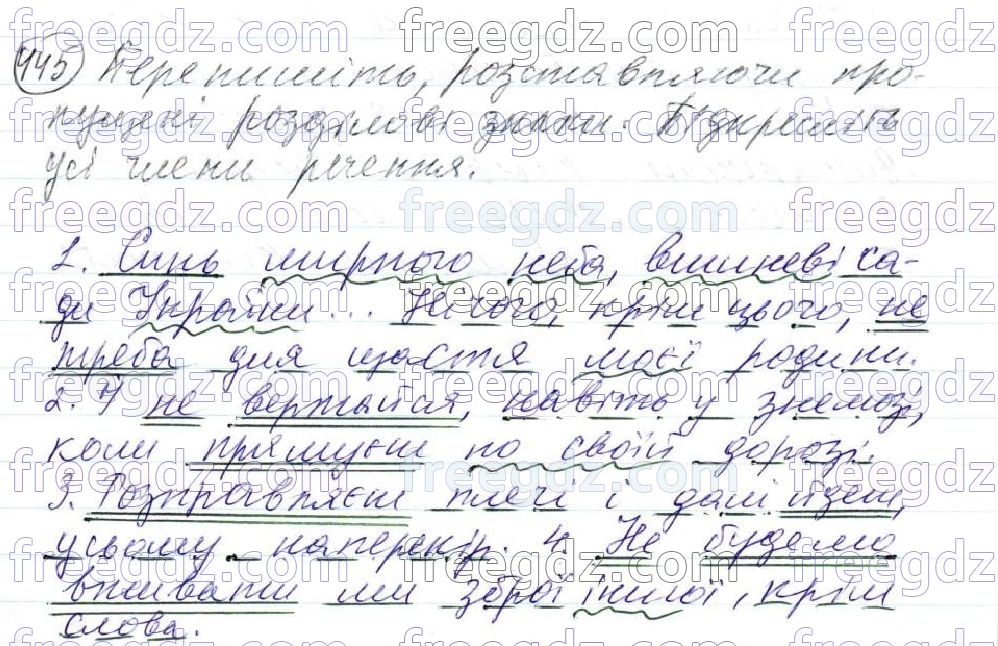 445 Перепишіть, розставляючи про-
пущені розділові знаки. Підкресліть
усі члени речення.
1. Синь мирного неба, вишневі са-
ди України... Нічого, крім цього, не
треба для щастя моєї родини.
2. Й не вертайся, навіть у знемозі,
коли прямуєш по своїй дорозі.
3. Розправляєш плечі і далі йдеш,
усьому наперекір. 4. Не будемо
вживати ми зброї іншої, крім
слова.
freegdz.com